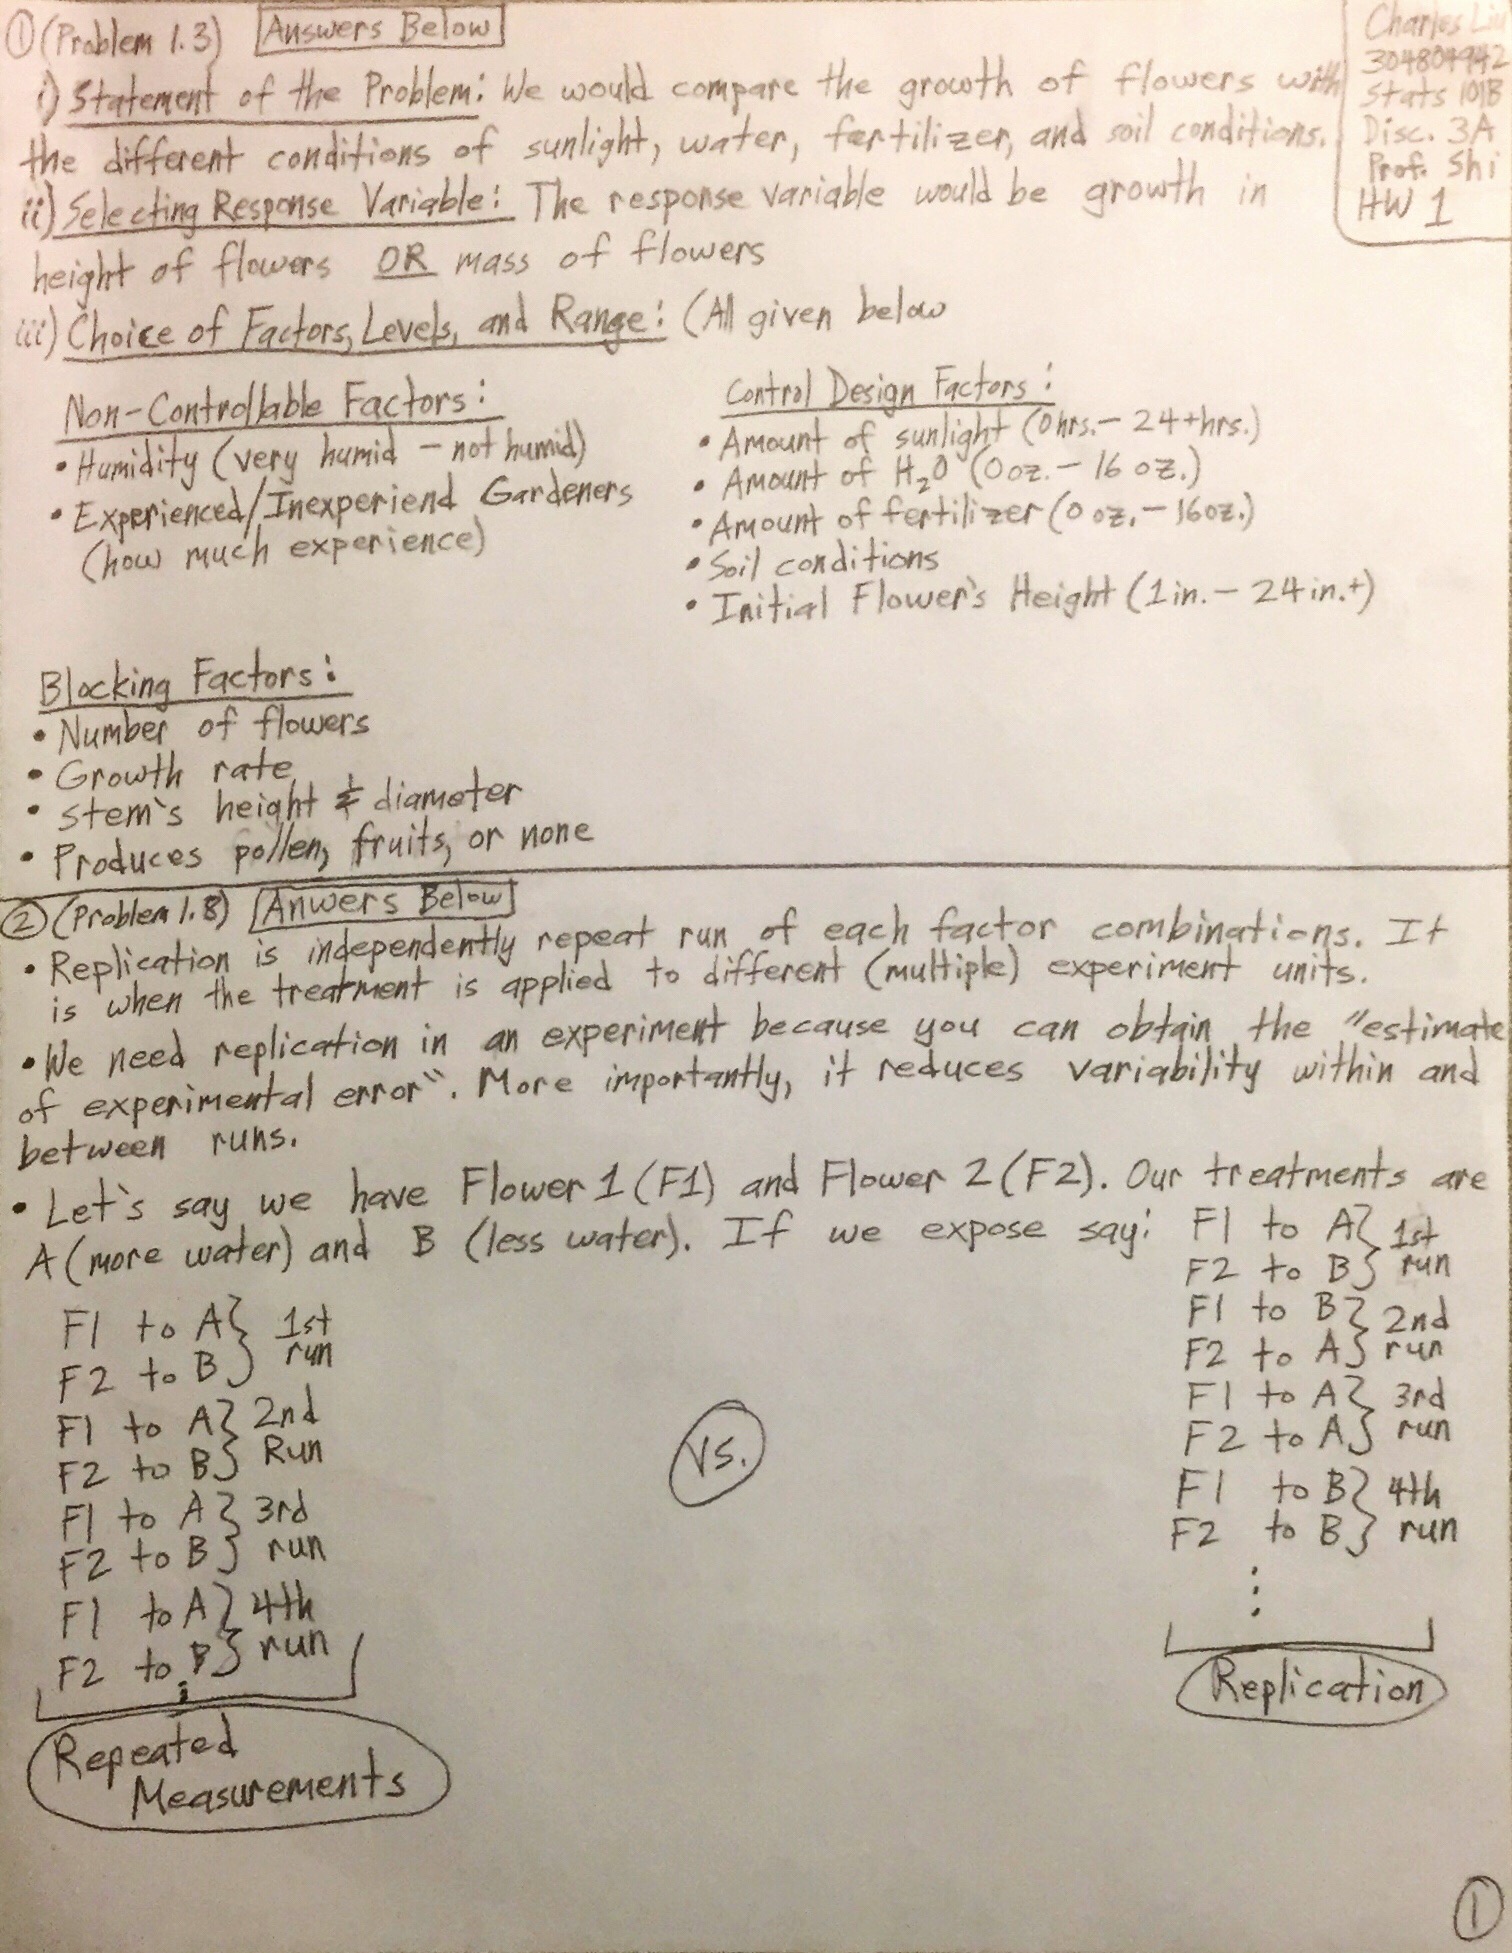 ① (Problem 1.3) Answers Below
Charles
304804942
Stats 101B
Disc. 3A
Prof. Shi
HW 1
i) Statement of the Problem: We would compare the growth of flowers with
the different conditions of sunlight, water, fertilizer, and soil conditions.
ii) Selecting Response Variable: The response variable would be growth in
height of flowers OR mass of flowers
iii) Choice of Factors, Levels, and Range: (All given below
Non-Controllable Factors:
• Humidity (very humid - not humid)
• Experienced/Inexperiend Gardeners
(how much experience)
Control Design Factors:
• Amount of sunlight (0hrs. - 24+hrs.)
• Amount of H₂O (0 oz. - 16 oz.)
• Amount of fertilizer (0 oz. - 16oz.)
• Soil conditions
• Initial Flower's Height (1in. - 24in.+)
Blocking Factors:
• Number of flowers
• Growth rate
• Stem's height & diameter
• Produces pollen, fruits, or none
② (Problem 1.8) Anwers Below
• Replication is independently repeat run of each factor combinations. It
is when the treatment is applied to different (multiple) experiment units.
• We need replication in an experiment because you can obtain the "estimate
of experimental error". More importantly, it reduces variability within and
between runs.
• Let's say we have Flower 1 (F1) and Flower 2 (F2). Our treatments are
A (more water) and B (less water). If we expose say:
F1 to A } 1st
F2 to B } run
F1 to A } 2nd
F2 to B } Run
F1 to A } 3rd
F2 to B } run
F1 to A } 4th
F2 to B } run
Repeated
Measurements
vs.
F1 to A } 1st
F2 to B } run
F1 to B } 2nd
F2 to A } run
F1 to A } 3rd
F2 to A } run
F1 to B } 4th
F2 to B } run
Replication
①